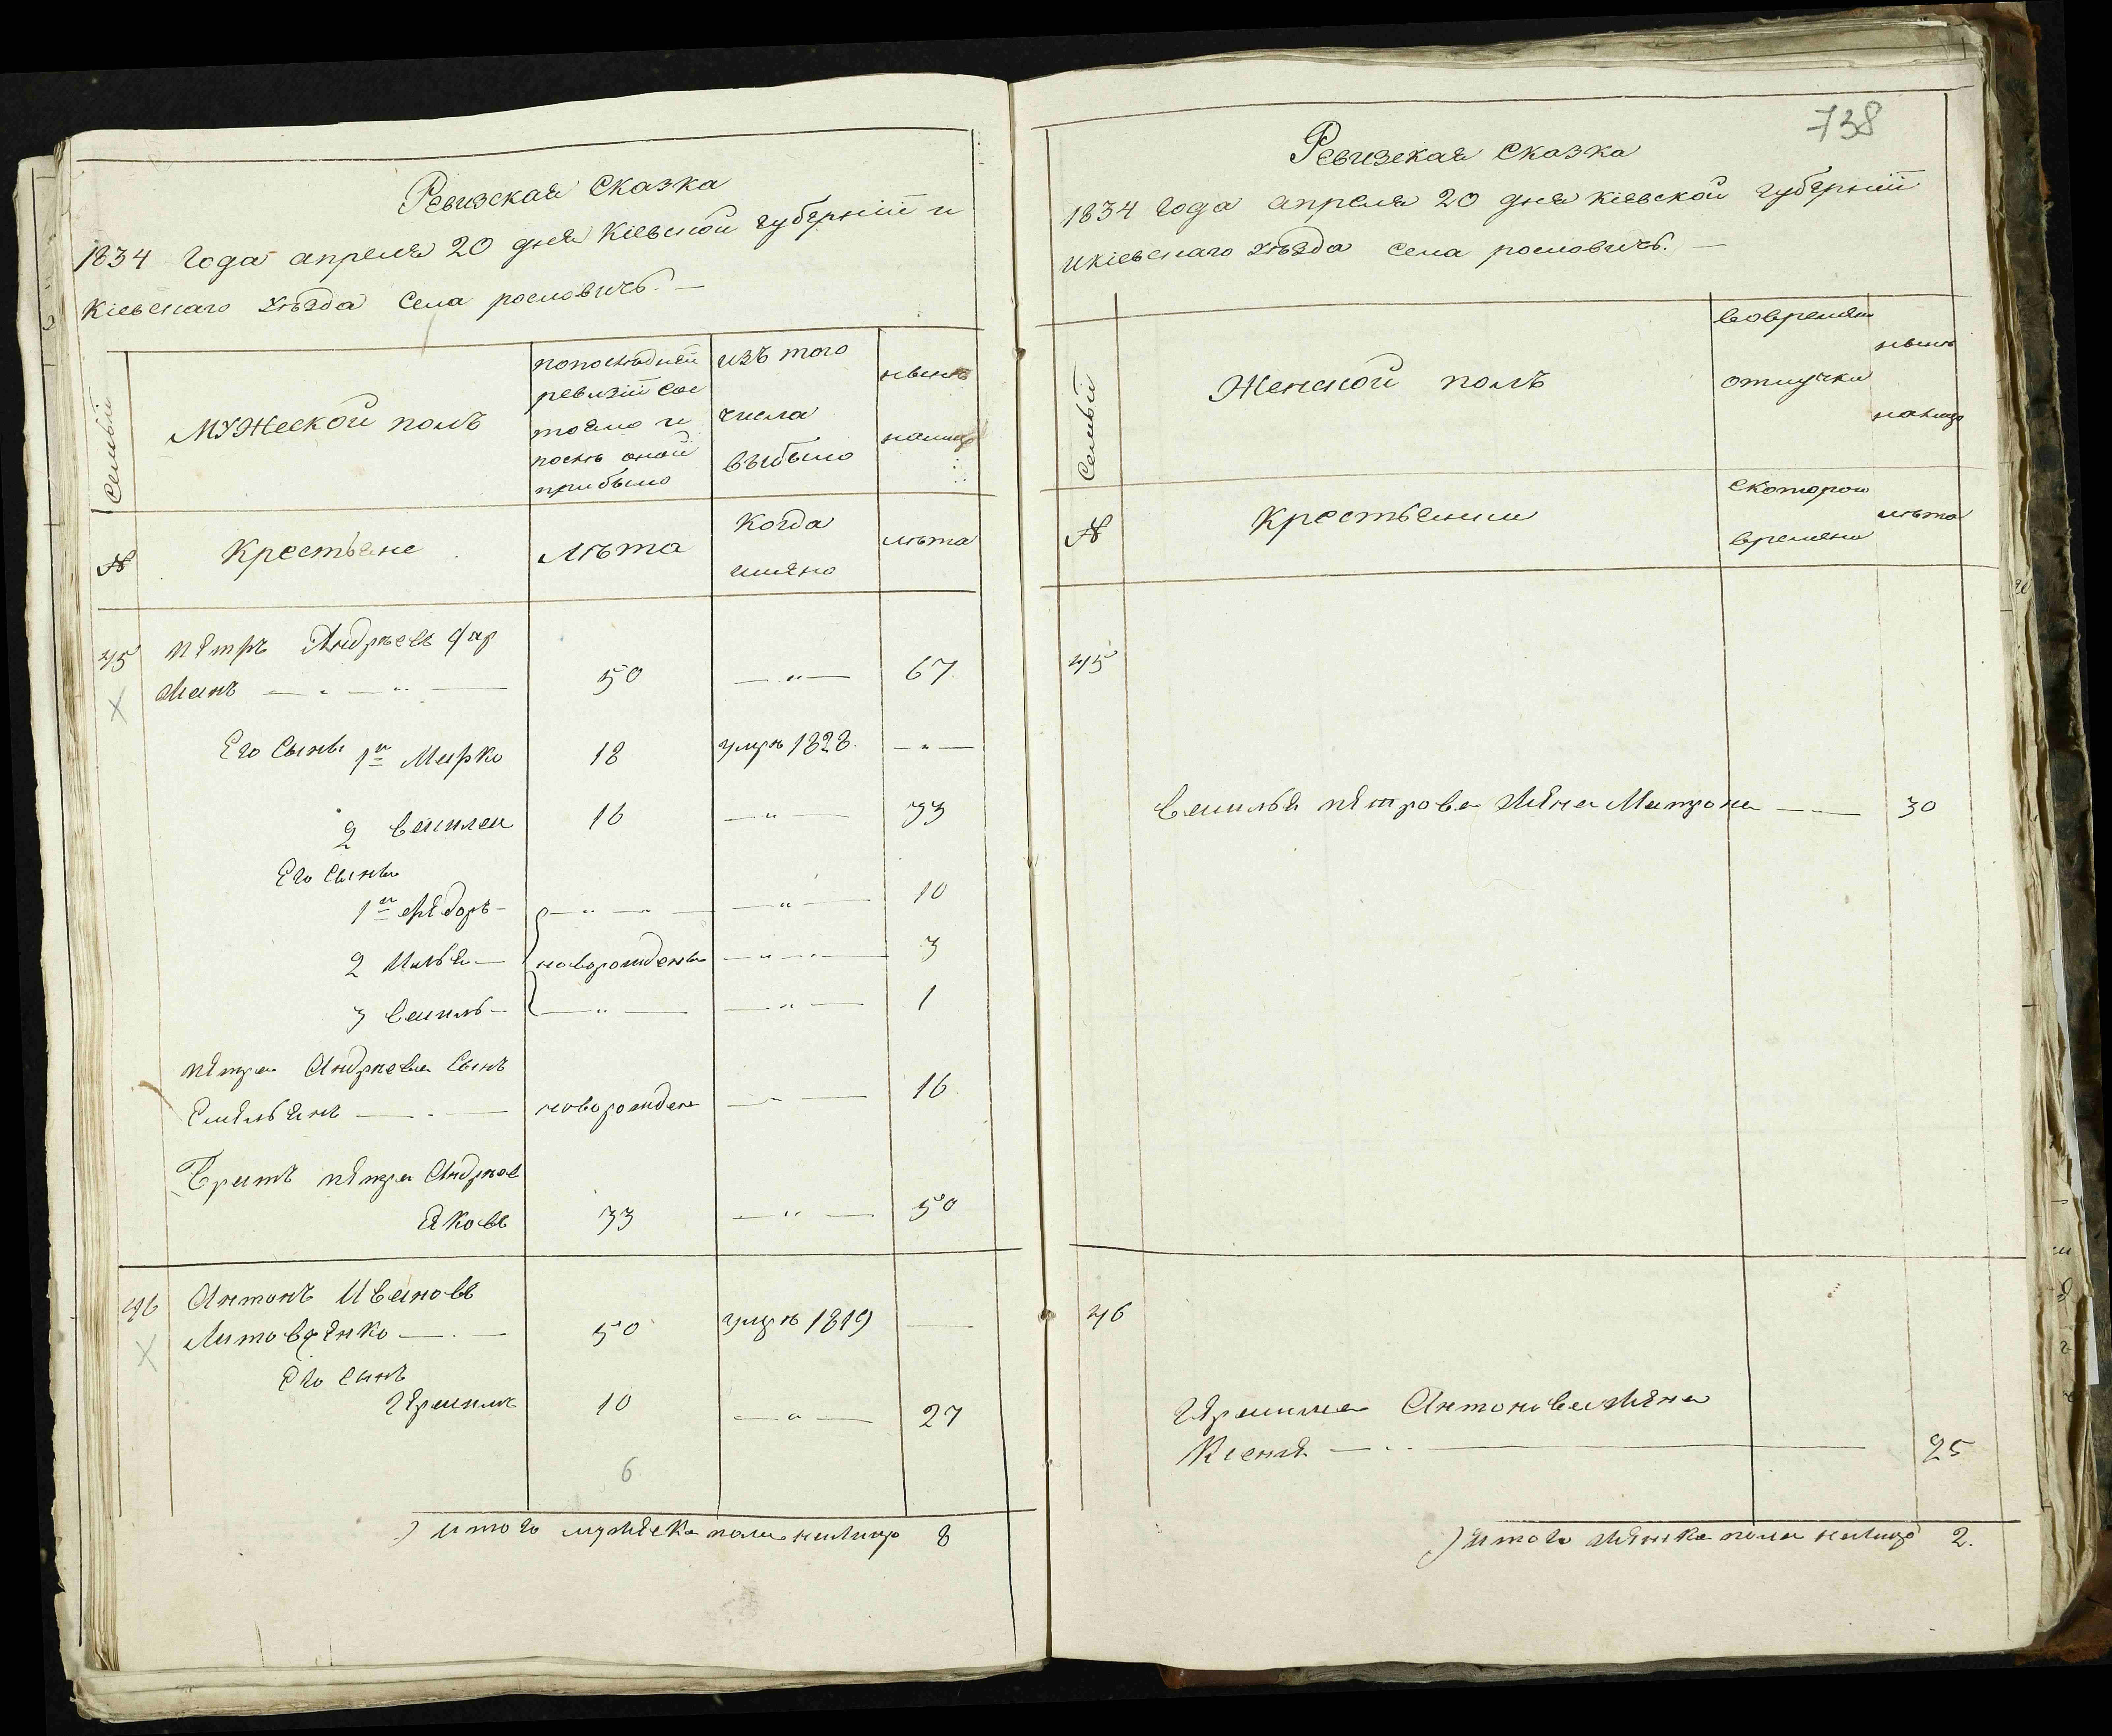 Ревизская Сказка
1834 Года апреля 20 дня Кіевской губерніи и
Кіевскаго уѣзда Села рословичъ. —
Семьи
Мужеской полъ
попослѣдней
ревизіи сос
тояло и
послѣ оной
прибыло
изъ того
числа
выбыло
нынѣ
налицо
№
Крестьяне
Лѣта
Когда
имяно
лѣта
45 Пятръ Андрѣевъ
— " — 50 — " — 67
Его Сыны 1й Марко 18 умръ 1828. — " —
2 Василей 16 — " — 33
Его Сыны
1й Фядоръ — " — " — — " — 10
2 Илья — новорожденны — " — 3
3 Василь — " — — " — 1
Пятра Андрѣева Сынъ
Емяльянъ — новорожден — " — 16
Братъ Пятра Андрѣев
Яковъ 33 — " — 50
46 Антонъ Ивановъ
Литовчянко — 50 умръ 1819 —
Его Сынъ
Гярасимъ 10 — " — 27
6
Итого мужяска пола налицо 8
738
Ревизская Сказка
1834 Года апреля 20 дня Кіевской губерніи
и Кіевскаго уѣзда Села рословичъ. —
Семьи
Женской полъ
вовремян
отлучки
нынѣ
налицо
№
Крестьянки
скоторого
времяни
лѣта
45
Василья Пятрова жяна Матрона — 30
46
Гярасима Антонова жяна
Ксенія — 25
Итого жянска пола налицо 2.